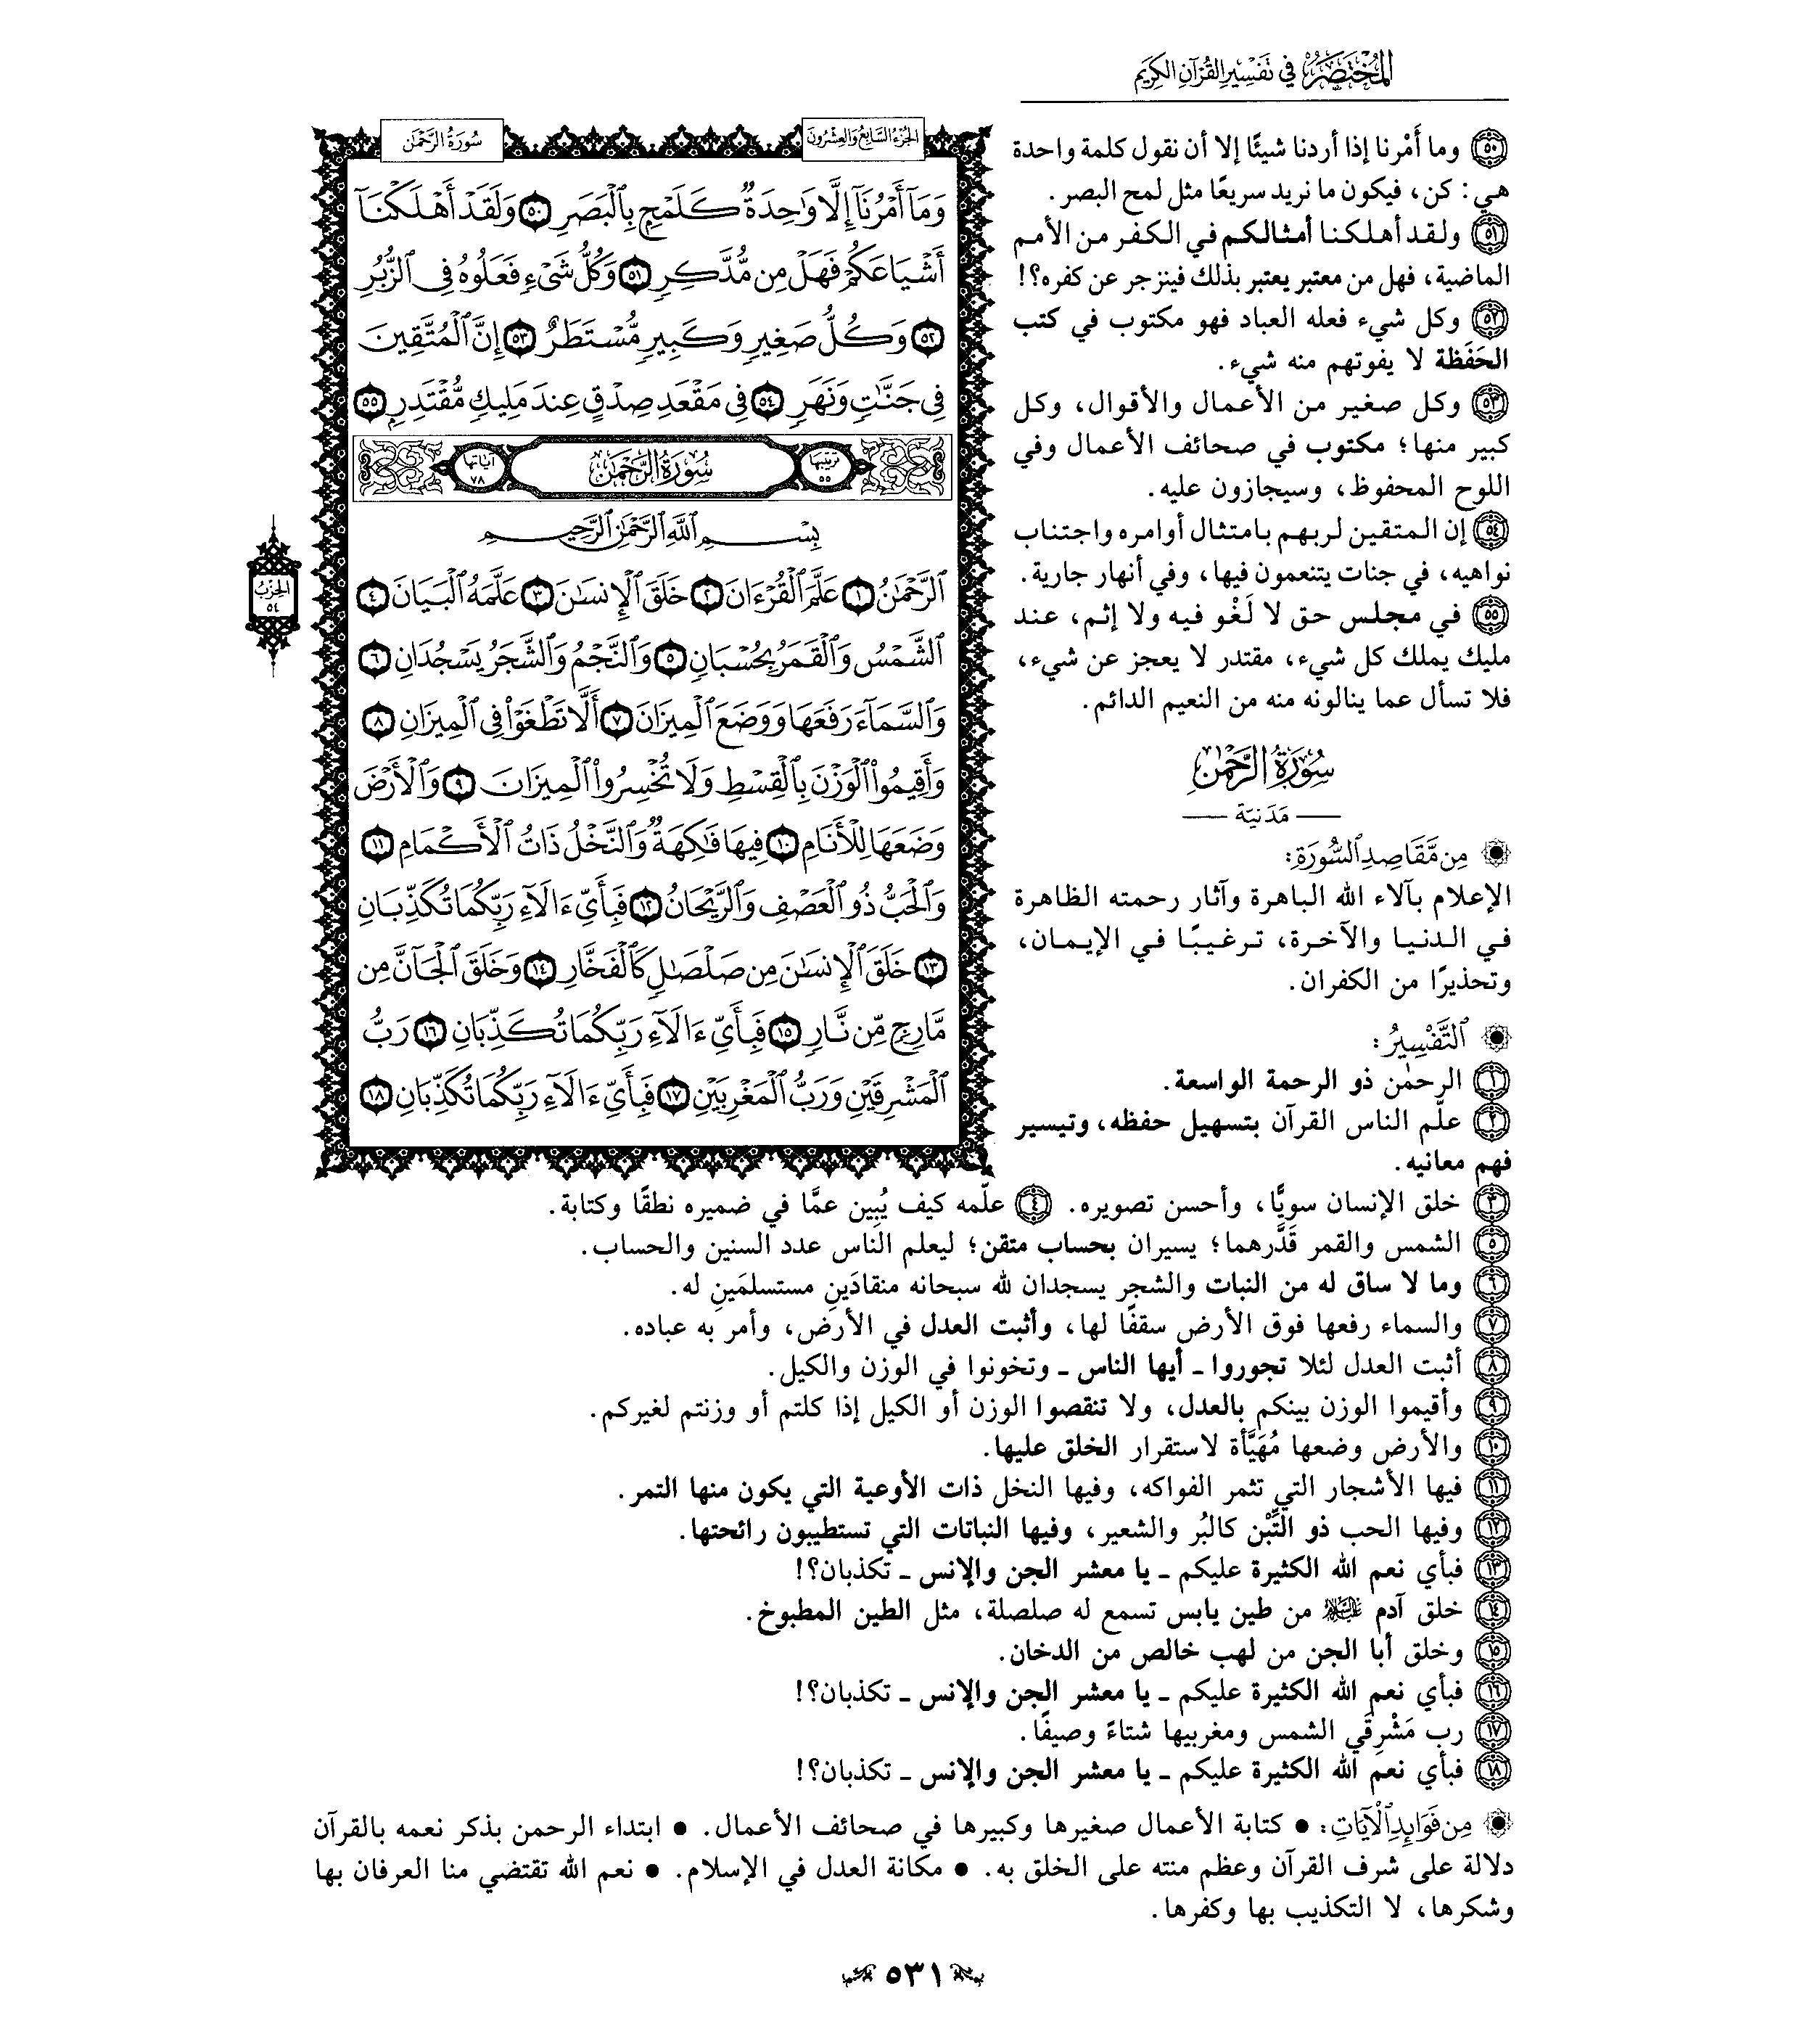 المختصر في تفسير القرآن الكريم
٥٠ وما أَمْرنا إذا أردنا شيئًا إلا أن نقول كلمة واحدة
هي: كن، فيكون ما نريد سريعًا مثل لمح البصر.
٥١ ولقد أهلكنا أمثالكم في الكفر من الأمم
الماضية، فهل من معتبر يعتبر بذلك فينزجر عن كفره؟!
٥٢ وكل شيء فعله العباد فهو مكتوب في كتب
الحَفَظة لا يفوتهم منه شيء.
٥٣ وكل صغير من الأعمال والأقوال، وكل
كبير منها؛ مكتوب في صحائف الأعمال وفي
اللوح المحفوظ، وسيجازون عليه.
٥٤ إن المتقين لربهم بامتثال أوامره واجتناب
نواهيه، في جنات يتنعمون فيها، وفي أنهار جارية.
٥٥ في مجلس حق لا لَغْو فيه ولا إثم، عند
مليك يملك كل شيء، مقتدر لا يعجز عن شيء،
فلا تسأل عما ينالونه منه من النعيم الدائم.
سُورَةُ الرَّحْمٰن
— مَدَنيّة —
مِن مَّقَاصِدِ ٱلسُّورَةِ:
الإعلام بآلاء الله الباهرة وآثار رحمته الظاهرة
في الدنيا والآخرة، ترغيبًا في الإيمان،
وتحذيرًا من الكفران.
ٱلتَّفْسِيرُ:
١ الرحمٰن ذو الرحمة الواسعة.
٢ علّم الناس القرآن بتسهيل حفظه، وتيسير
فهم معانيه.
الجُزْءُ السَّابِعُ وَالعِشْرُون
سُورَةُ الرَّحْمٰن
وَمَآ أَمْرُنَآ إِلَّا وَٰحِدَةٌ كَلَمْحٍۭ بِٱلْبَصَرِ ٥٠ وَلَقَدْ أَهْلَكْنَآ
أَشْيَاعَكُمْ فَهَلْ مِن مُّدَّكِرٍ ٥١ وَكُلُّ شَىْءٍ فَعَلُوهُ فِى ٱلزُّبُرِ
٥٢ وَكُلُّ صَغِيرٍ وَكَبِيرٍ مُّسْتَطَرٌ ٥٣ إِنَّ ٱلْمُتَّقِينَ
فِى جَنَّٰتٍ وَنَهَرٍ ٥٤ فِى مَقْعَدِ صِدْقٍ عِندَ مَلِيكٍ مُّقْتَدِرٍۭ ٥٥
ترتيبها ٥٥ سُورَةُ الرَّحْمٰن آياتها ٧٨
بِسْمِ ٱللَّهِ ٱلرَّحْمَٰنِ ٱلرَّحِيمِ
ٱلرَّحْمَٰنُ ١ عَلَّمَ ٱلْقُرْءَانَ ٢ خَلَقَ ٱلْإِنسَٰنَ ٣ عَلَّمَهُ ٱلْبَيَانَ ٤
ٱلشَّمْسُ وَٱلْقَمَرُ بِحُسْبَانٍ ٥ وَٱلنَّجْمُ وَٱلشَّجَرُ يَسْجُدَانِ ٦
وَٱلسَّمَآءَ رَفَعَهَا وَوَضَعَ ٱلْمِيزَانَ ٧ أَلَّا تَطْغَوْا۟ فِى ٱلْمِيزَانِ ٨
وَأَقِيمُوا۟ ٱلْوَزْنَ بِٱلْقِسْطِ وَلَا تُخْسِرُوا۟ ٱلْمِيزَانَ ٩ وَٱلْأَرْضَ
وَضَعَهَا لِلْأَنَامِ ١٠ فِيهَا فَٰكِهَةٌ وَٱلنَّخْلُ ذَاتُ ٱلْأَكْمَامِ ١١
وَٱلْحَبُّ ذُو ٱلْعَصْفِ وَٱلرَّيْحَانُ ١٢ فَبِأَىِّ ءَالَآءِ رَبِّكُمَا تُكَذِّبَانِ
١٣ خَلَقَ ٱلْإِنسَٰنَ مِن صَلْصَٰلٍ كَٱلْفَخَّارِ ١٤ وَخَلَقَ ٱلْجَآنَّ مِن
مَّارِجٍ مِّن نَّارٍ ١٥ فَبِأَىِّ ءَالَآءِ رَبِّكُمَا تُكَذِّبَانِ ١٦ رَبُّ
ٱلْمَشْرِقَيْنِ وَرَبُّ ٱلْمَغْرِبَيْنِ ١٧ فَبِأَىِّ ءَالَآءِ رَبِّكُمَا تُكَذِّبَانِ ١٨
الحِزْبُ
٥٤
٣ خلق الإنسان سويًّا، وأحسن تصويره. ٤ علّمه كيف يُبِين عمَّا في ضميره نطقًا وكتابة.
٥ الشمس والقمر قَدَّرهما؛ يسيران بحساب متقن؛ ليعلم الناس عدد السنين والحساب.
٦ وما لا ساق له من النبات والشجر يسجدان لله سبحانه منقادَينِ مستسلمَينِ له.
٧ والسماء رفعها فوق الأرض سقفًا لها، وأثبت العدل في الأرض، وأمر به عباده.
٨ أثبت العدل لئلا تجوروا ـ أيها الناس ـ وتخونوا في الوزن والكيل.
٩ وأقيموا الوزن بينكم بالعدل، ولا تنقصوا الوزن أو الكيل إذا كلتم أو وزنتم لغيركم.
١٠ والأرض وضعها مُهَيَّأة لاستقرار الخلق عليها.
١١ فيها الأشجار التي تثمر الفواكه، وفيها النخل ذات الأوعية التي يكون منها التمر.
١٢ وفيها الحب ذو التِّبْن كالبُر والشعير، وفيها النباتات التي تستطيبون رائحتها.
١٣ فبأي نعم الله الكثيرة عليكم ـ يا معشر الجن والإنس ـ تكذبان؟!
١٤ خلق آدم عليه السلام من طين يابس تسمع له صلصلة، مثل الطين المطبوخ.
١٥ وخلق أبا الجن من لهب خالص من الدخان.
١٦ فبأي نعم الله الكثيرة عليكم ـ يا معشر الجن والإنس ـ تكذبان؟!
١٧ رب مَشْرِقَي الشمس ومغربيها شتاءً وصيفًا.
١٨ فبأي نعم الله الكثيرة عليكم ـ يا معشر الجن والإنس ـ تكذبان؟!
مِن فَوَائِدِ ٱلْآيَاتِ: • كتابة الأعمال صغيرها وكبيرها في صحائف الأعمال. • ابتداء الرحمن بذكر نعمه بالقرآن
دلالة على شرف القرآن وعظم منته على الخلق به. • مكانة العدل في الإسلام. • نعم الله تقتضي منا العرفان بها
وشكرها، لا التكذيب بها وكفرها.
٥٣١